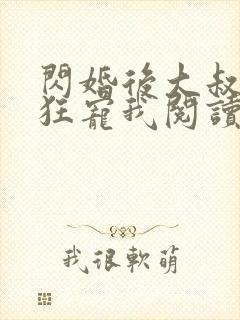 閃婚後大叔
狂寵我閱讀
我很軟萌